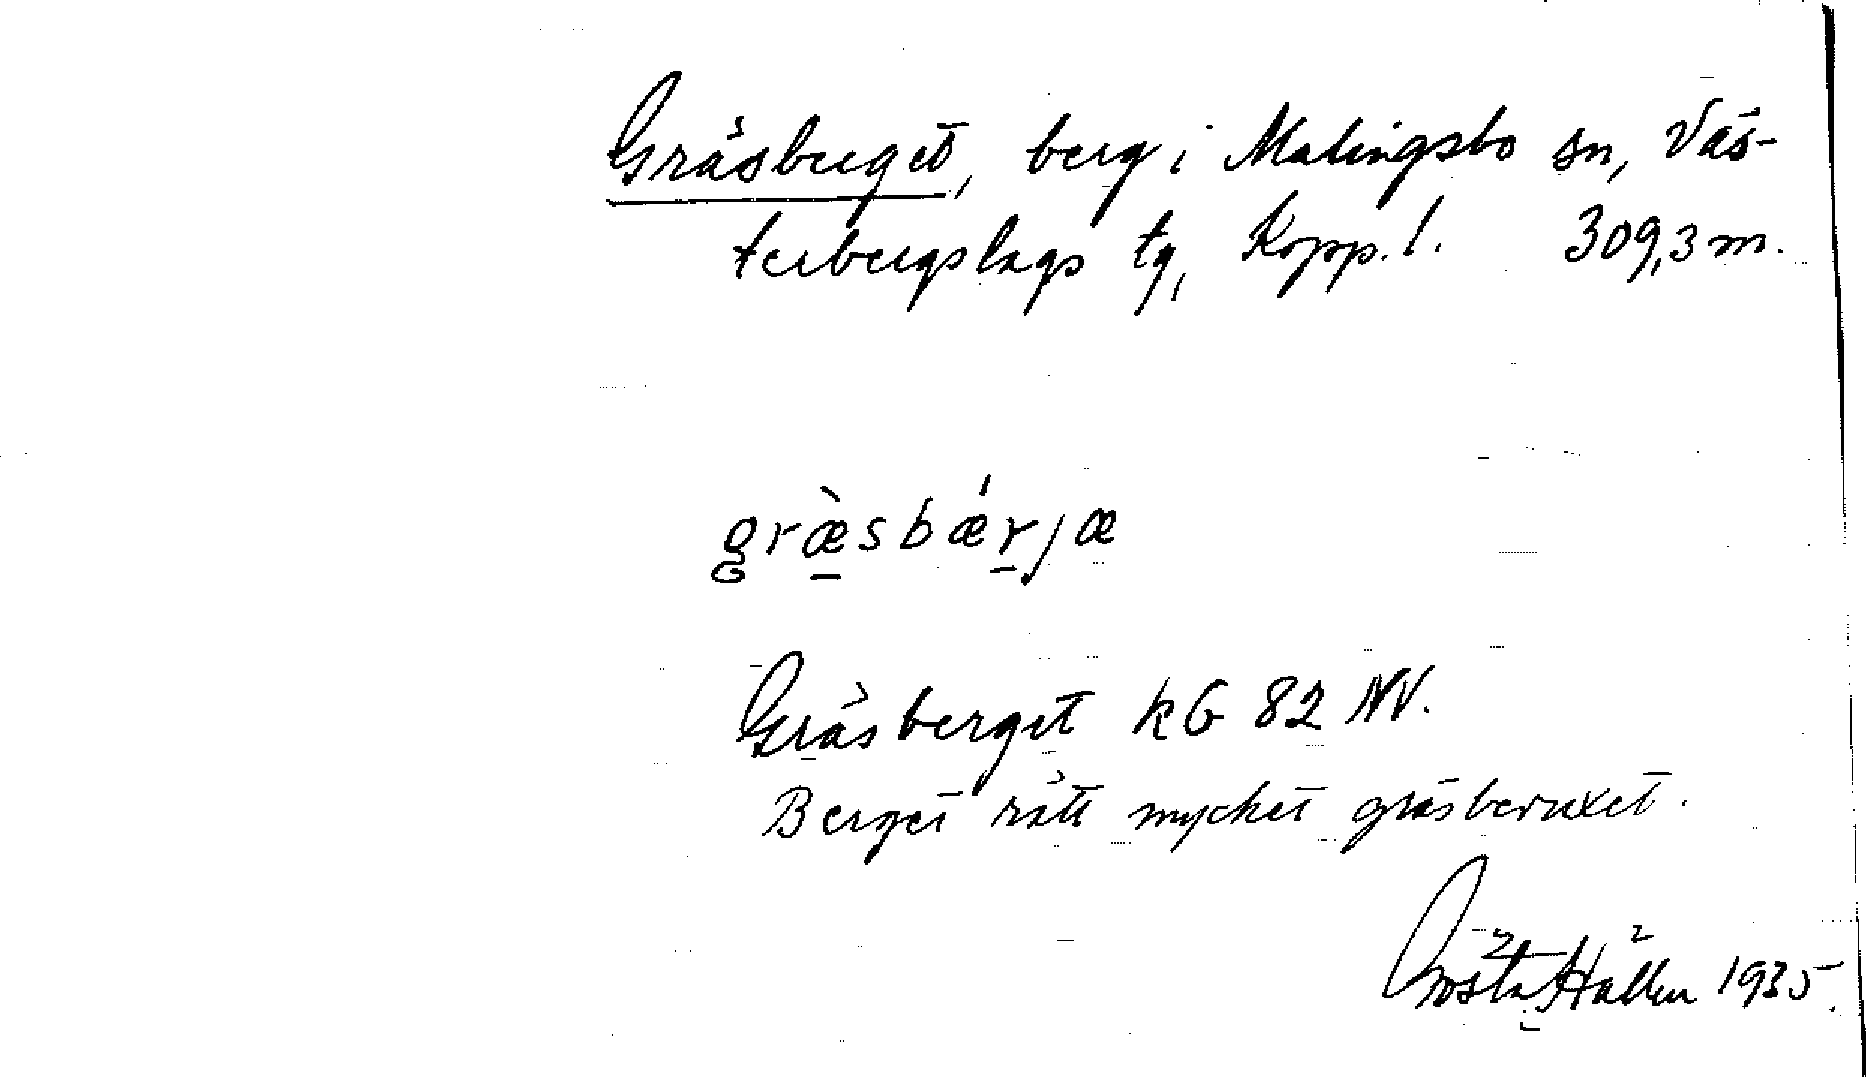 Gräsberget, berg i Malingsbo sn, Väs-
terbergslags tg, Kopp. l. 309,3 m.
græ̀sbǽrjæ
Gräsberget kG 82 NV.
Berget rätt mycket gräsbevuxet.
Gösta Hållen 1935.